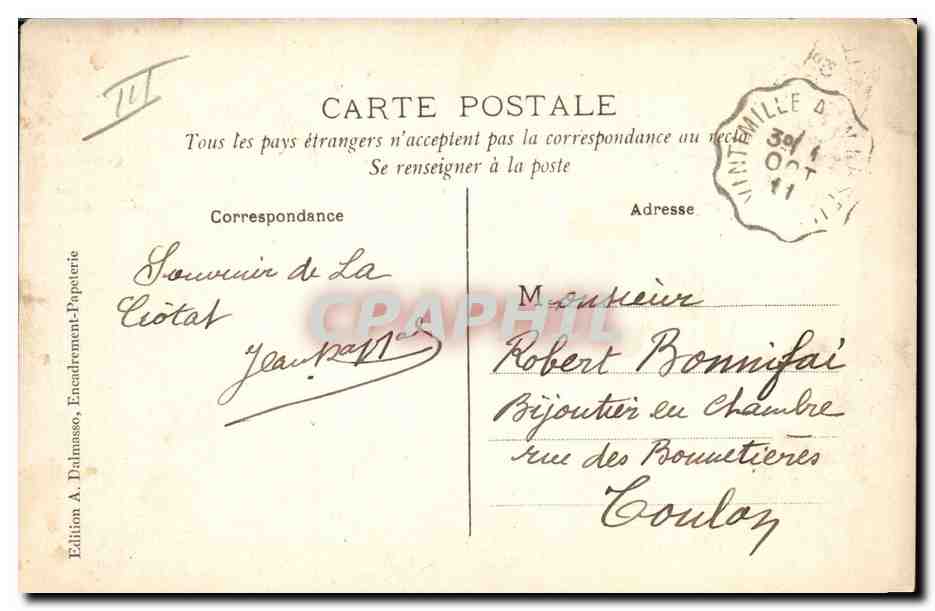 III
CARTE POSTALE
Tous les pays étrangers n'acceptent pas la correspondance au recto
Se renseigner à la poste
VINTIMILLE A
OCT
11
Correspondance
Adresse
Souvenir de La
Ciotat
Jean
Monsieur
Robert Bonnifai
Bijoutier en Chambre
rue des Bonnetières
Toulon
Edition A. Dalmasso, Encadrement-Papeterie
CPAPHIL